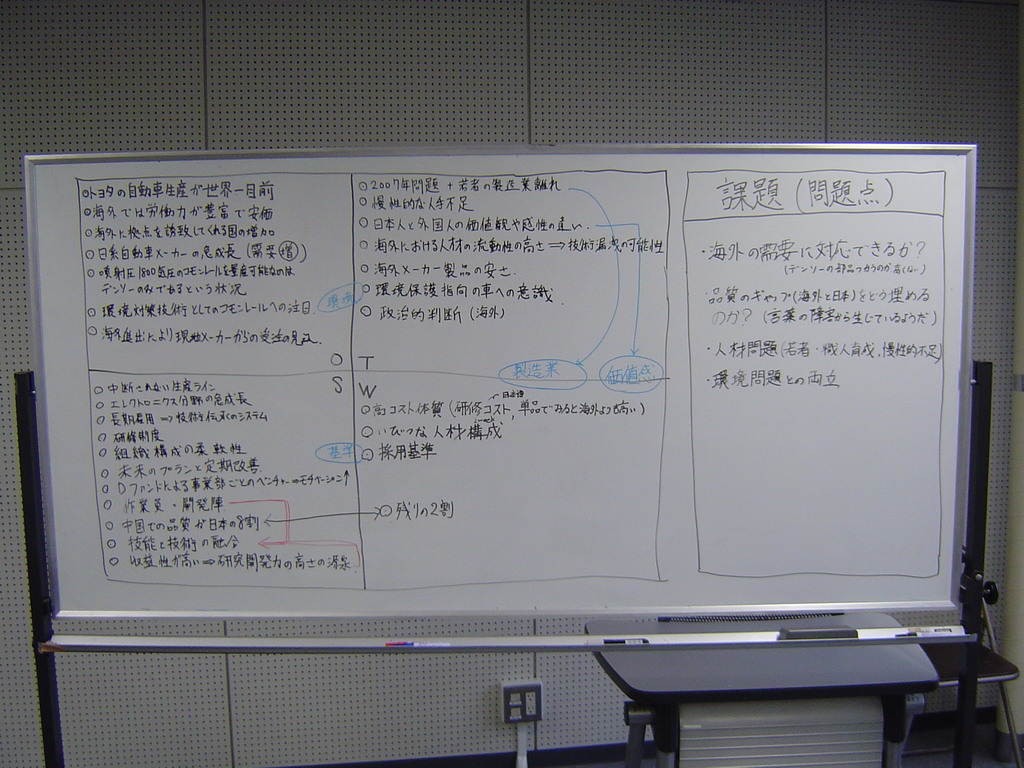 ○トヨタの自動車生産が世界一目前
○海外では労働力が豊富で安価
○海外に拠点を誘致してくれる国の増加
○日系自動車メーカーの急成長(需要増)
○噴射圧1800気圧のコモンレールを量産可能なのは
デンソーのみであるという状況
○環境対策技術としてのコモンレールへの注目
環境
○海外進出により現地メーカーからの受注の見込
O
○2007年問題+若者の製造業離れ
○慢性的な人手不足
○日本人と外国人の価値観や感性の違い
○海外における人材の流動性の高さ⇒技術漏洩の可能性
○海外メーカー製品の安さ
○環境保護指向の車への意識
○政治的判断(海外)
T
製造業
価値感
S
○中断されない生産ライン
○エレクトロニクス分野の急成長
○長期雇用⇒技術伝承のシステム
○研修制度
○組織構成の柔軟性
○未来のプランと定期改善
○Dファンドによる事業部ごとのベンチャー⇒モチベーション↑
○作業員・開発陣
○中国での品質が日本の8割
○技能と技術の融合
○収益性が高い⇒研究開発力の高さの源泉
基準
W
○高コスト体質(研修コスト,単品でみると海外よりも高い)
○いびつな人材構成
○採用基準
○残りの2割
課題(問題点)
・海外の需要に対応できるか?
(デンソーの部品つかうのが
・品質のギャップ(海外と日本)をどう埋める
のか?(言葉の障害から生じているようだ)
・人材問題(若者・職人育成,慢性的不足)
・環境問題との両立